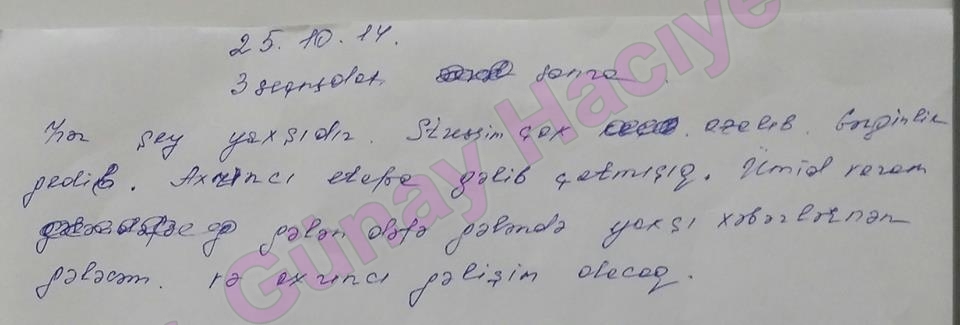 25.10.14.
3 seansdan sonra.
Hər şey yaxşıdır. Stressim çox azalıb. Gərginlik
gedib. Axırıncı etapa gəlib çatmışıq. Ümid varam
gələn dəfə gələndə yaxşı xəbərlərnən
gələcəm. və axırıncı gəlişim olacaq.
Günay Hacıye